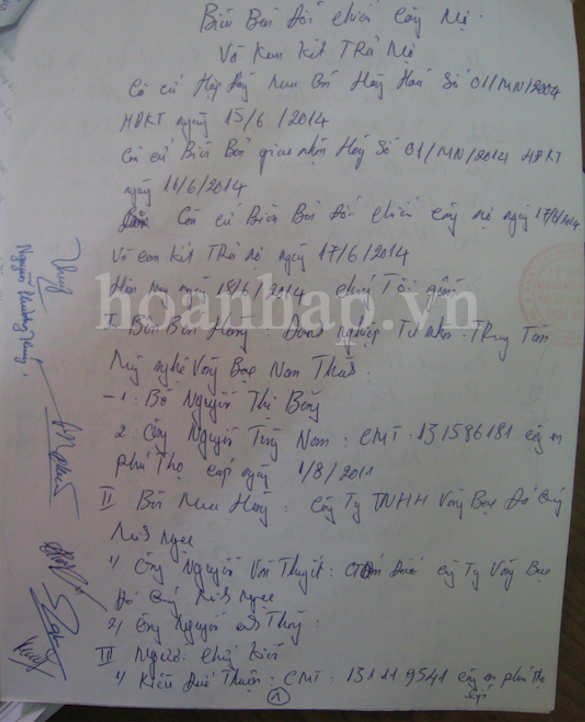 Biên Bản Đối chiếu Công Nợ.
Và Cam Kết Trả Nợ
Căn cứ Hợp Đồng Mua Bán Hàng Hoá Số 01/MN/2014
HĐKT ngày 15/6/2014
Căn cứ Biên Bản giao nhận Hàng Số 01/MN/2014 HĐKT
ngày 16/6/2014
Căn cứ Biên Bản Đối chiếu công nợ ngày 17/6/2014
Và cam kết Trả nợ ngày 17/6/2014
Hôm nay ngày 18/6/2014 chúng Tôi gồm
hoanbap.vn
I Bên Bán Hàng: Doanh nghiệp Tư nhân: Trung Tâm
Mỹ nghệ Vàng Bạc Nam Thái.
- 1: Bà Nguyễn Thị Bằng
2: Ông Nguyễn Tùng Nam: CMT: 131586181 công an
phú Thọ cấp ngày 1/8/2011
II Bên Mua Hàng: Công Ty TNHH Vàng Bạc Đá Quý
1/ Ông Nguyễn Văn Thuyết: Giám Đốc công Ty Vàng Bạc
Đá Quý
2/ Ông Nguyễn
III Người chứng kiến
1/ Kiều Đức Thuận: CMT: 131119541 công an phú thọ
cấp
1